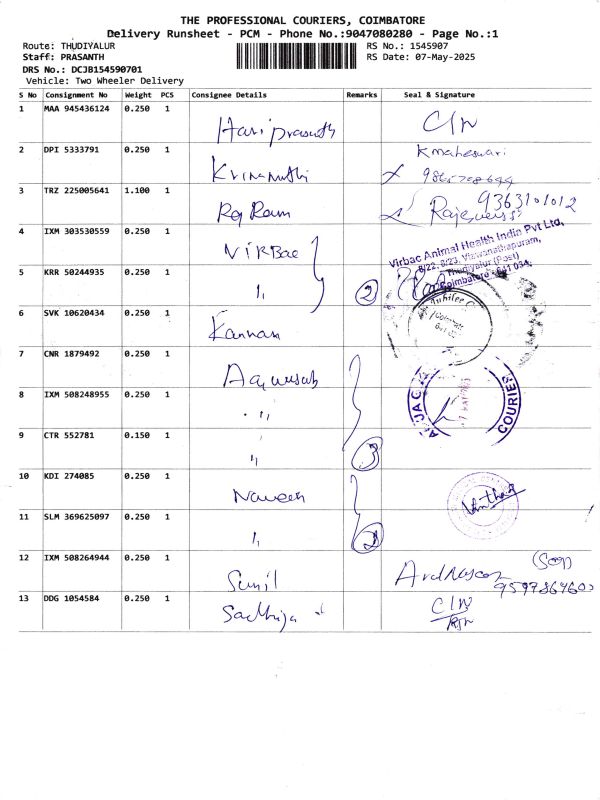 THE PROFESSIONAL COURIERS, COIMBATORE
Delivery Runsheet - PCM - Phone No.:9047080280 - Page No.:1
Route: THUDIYALUR
RS No.: 1545907
Staff: PRASANTH
RS Date: 07-May-2025
DRS No.: DCJB154590701
Vehicle: Two Wheeler Delivery
S No Consignment No Weight PCS Consignee Details Remarks Seal & Signature
1 MAA 945436124 0.250 1 Hariprasath C/N
2 DPI 5333791 0.250 1 Kmaheswari
3 TRZ 225005641 1.100 1 Raj Ram 9363101012
4 IXM 303530559 0.250 1 VIRBac
Virbac Animal Health India Pvt Ltd,
6/22, 6/23, Viswanathapuram,
Thudiyalur (Post)
Coimbatore - 641 034.
5 KRR 50244935 0.250 1 ,, 2
6 SVK 10620434 0.250 1 Kannan
7 CNR 1879492 0.250 1
8 IXM 508248955 0.250 1 ,,
COURIER
9 CTR 552781 0.150 1 ,, 3
10 KDI 274085 0.250 1 Naveen
11 SLM 369625097 0.250 1 ,, 2
12 IXM 508264944 0.250 1 Sunil (Son)
13 DDG 1054584 0.250 1 C/N